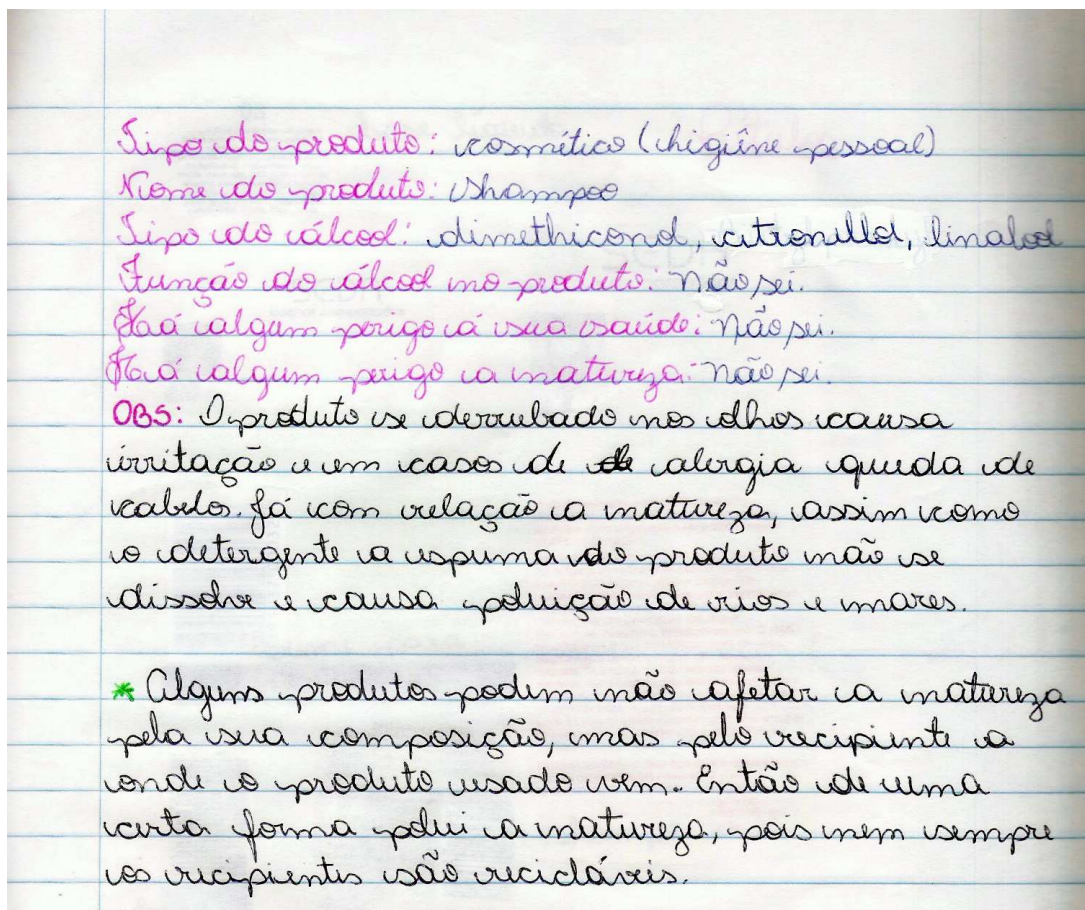 Tipo do produto: cosmético (higiêne pessoal)
Nome do produto: Shampoo
Tipo do álcool: dimethicond, citronilld, linalool
Função do álcool no produto: Não sei.
Há algum perigo á sua saúde: Não sei.
Há algum perigo a natureza: Não sei.
OBS: O produto se derrubado nos olhos causa
irritação e em casos de alergia queda de
cabelos. Já com relação a natureza, assim como
o detergente a espuma do produto não se
dissolve e causa poluição de rios e mares.
* Alguns produtos podem não afetar a natureza
pela sua composição, mas pelo recipiente a
onde o produto usado vem. Então de uma
certa forma polui a natureza, pois nem sempre
os recipientes são recicláveis.